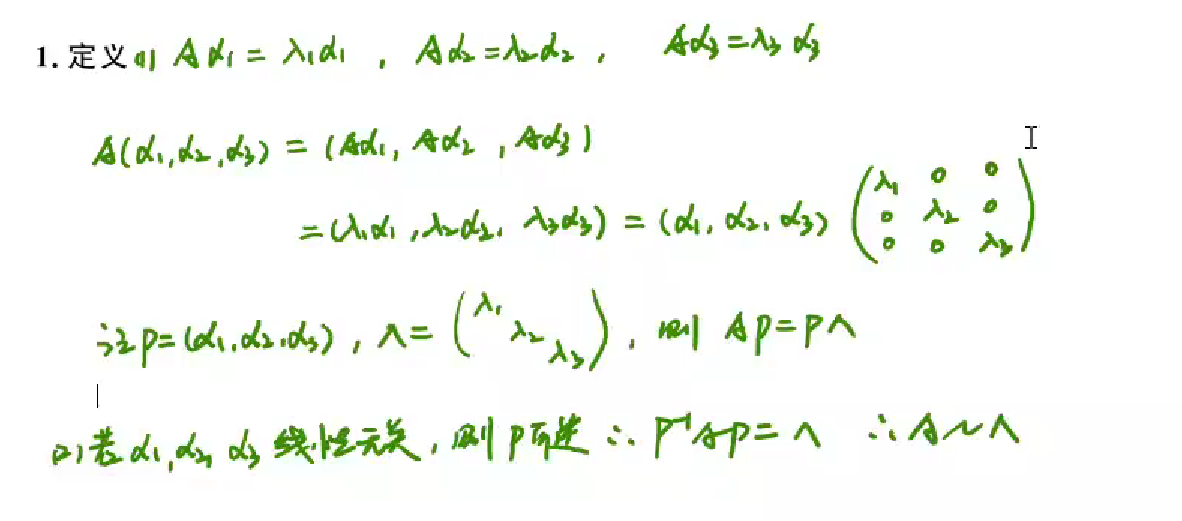 1. 定义 (1) Aα₁ = λ₁α₁ , Aα₂ = λ₂α₂ , Aα₃ = λ₃α₃
A(α₁, α₂, α₃) = (Aα₁, Aα₂, Aα₃)
= (λ₁α₁, λ₂α₂, λ₃α₃) = (α₁, α₂, α₃) (λ₁ 0 0
0 λ₂ 0
0 0 λ₃)
记 P = (α₁, α₂, α₃) , Λ = (λ₁ λ₂ λ₃) , 则 AP = PΛ
(2) 若 α₁, α₂, α₃ 线性无关 , 则 P 可逆 ∴ P⁻¹AP = Λ ∴ A ~ Λ